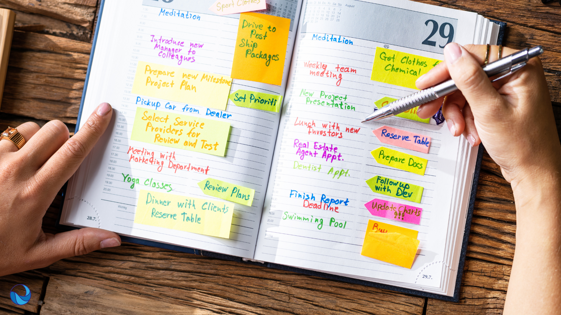 Meditation
Introduce new
Manager to
Colleagues
Drive to
Post
Ship
Packages
Prepare new
Project Plan
Set Prioriti
Pickup Car from Dealer
Select Service
Providers for
Review and Test
Meeting with
Marketing Department
Yoga Classes
Review Plans
Dinner with Clients
Reserve Table
29
Meditation
Weekly team
meeting
Get Clothes
Chemical
New Project
Presentation
Lunch with new
Investors
Reserve Table
Real Estate
Agent Appt.
Prepare Docs
Dentist Appt.
Follow up
with Dev
Finish Report
Deadline
Update Charts
Swimming Pool